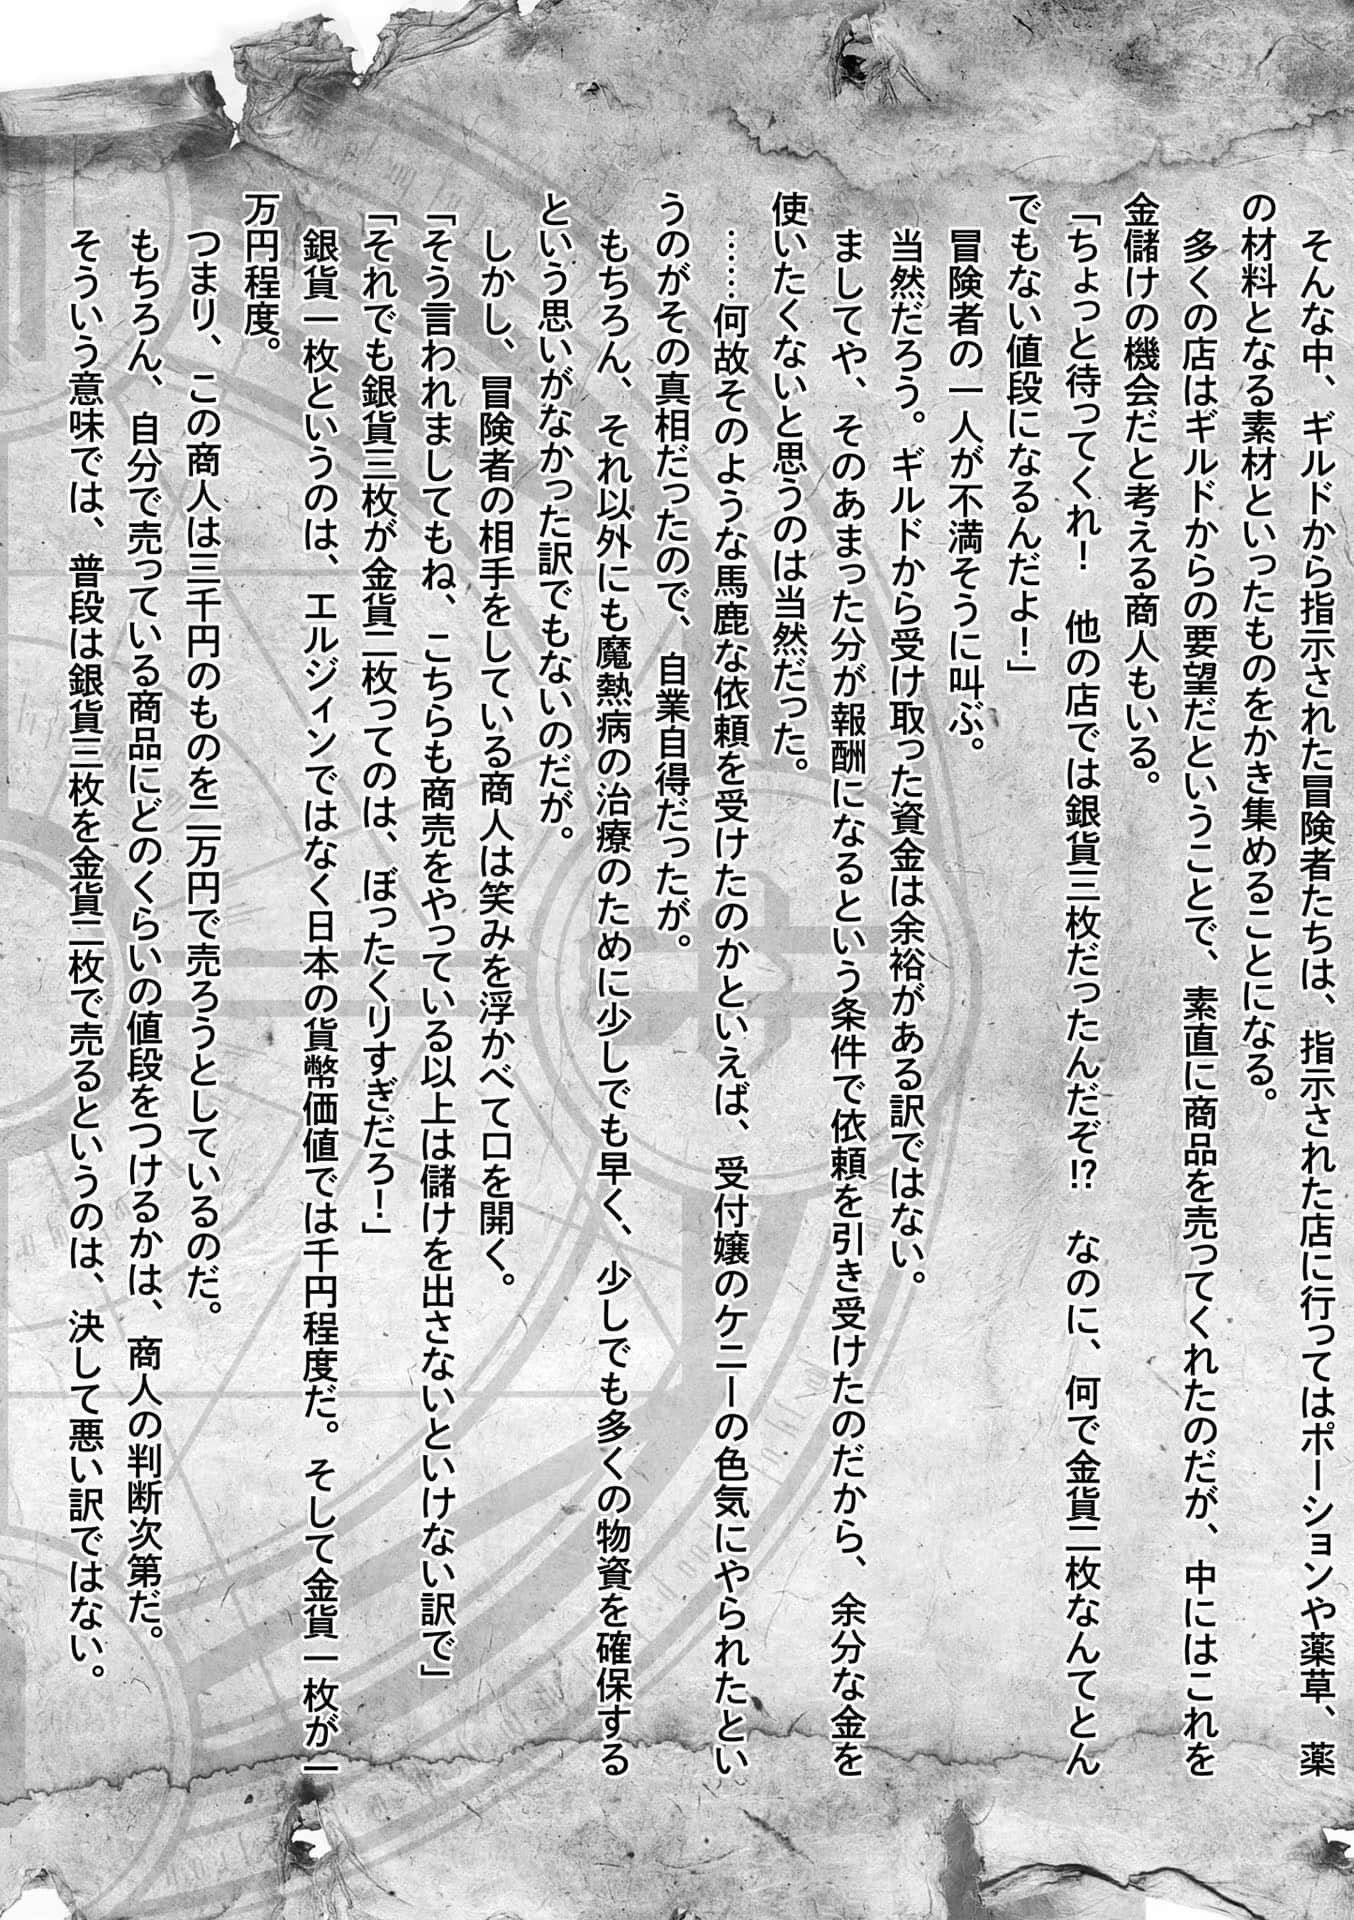 そんな中、ギルドから指示された冒険者たちは、指示された店に行ってはポーションや薬草、薬
の材料となる素材といったものをかき集めることになる。
多くの店はギルドからの要望だということで、素直に商品を売ってくれたのだが、中にはこれを
金儲けの機会だと考える商人もいる。
「ちょっと待ってくれ！　他の店では銀貨三枚だったんだぞ⁉　なのに、何で金貨二枚なんてとん
でもない値段になるんだよ！」
冒険者の一人が不満そうに叫ぶ。
当然だろう。ギルドから受け取った資金は余裕がある訳ではない。
ましてや、そのあまった分が報酬になるという条件で依頼を引き受けたのだから、余分な金を
使いたくないと思うのは当然だった。
……何故そのような馬鹿な依頼を受けたのかといえば、受付嬢のケニーの色気にやられたとい
うのがその真相だったので、自業自得だったが。
もちろん、それ以外にも魔熱病の治療のために少しでも早く、少しでも多くの物資を確保する
という思いがなかった訳でもないのだが。
しかし、冒険者の相手をしている商人は笑みを浮かべて口を開く。
「そう言われましてもね、こちらも商売をやっている以上は儲けを出さないといけない訳で」
「それでも銀貨三枚が金貨二枚ってのは、ぼったくりすぎだろ！」
銀貨一枚というのは、エルジィンではなく日本の貨幣価値では千円程度だ。そして金貨一枚が一
万円程度。
つまり、この商人は三千円のものを二万円で売ろうとしているのだ。
もちろん、自分で売っている商品にどのくらいの値段をつけるかは、商人の判断次第だ。
そういう意味では、普段は銀貨三枚を金貨二枚で売るというのは、決して悪い訳ではない。